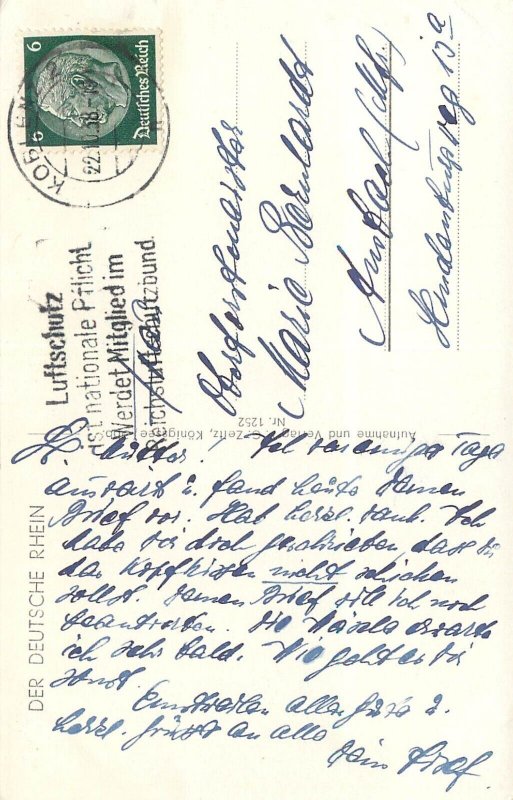 6
6
Deutsches Reich
KOBLENZ
22.
Luftschutz
ist nationale Pflicht
Werdet Mitglied im
Reichsluftschutzbund.
Marie Bernhardt
Hindenburgweg 13a
Aufnahme und Verlag
Zeitz, Königssee
Nr. 1252
DER DEUTSCHE RHEIN
L. Mutter! Ich war einige Tage
auswärts u. fand heute Deinen
Brief vor. Hab herzl. Dank. Ich
habe Dir doch geschrieben, dass Du
das Kopfkissen nicht schicken
sollst. Deinen Brief will ich noch
beantworten. Die Wäsche erwarte
ich sehr bald. Wie geht es Dir
sonst.
Einstweilen alles Gute u.
herzl. Grüsse an alle
Dein Josef